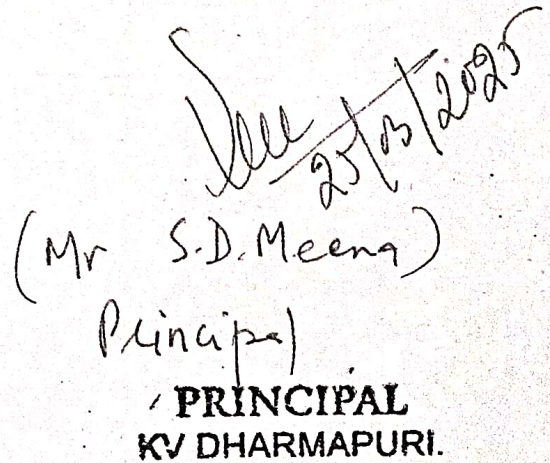 25/03/2025
(Mr S.D. Meena)
Principal
PRINCIPAL
KV DHARMAPURI.